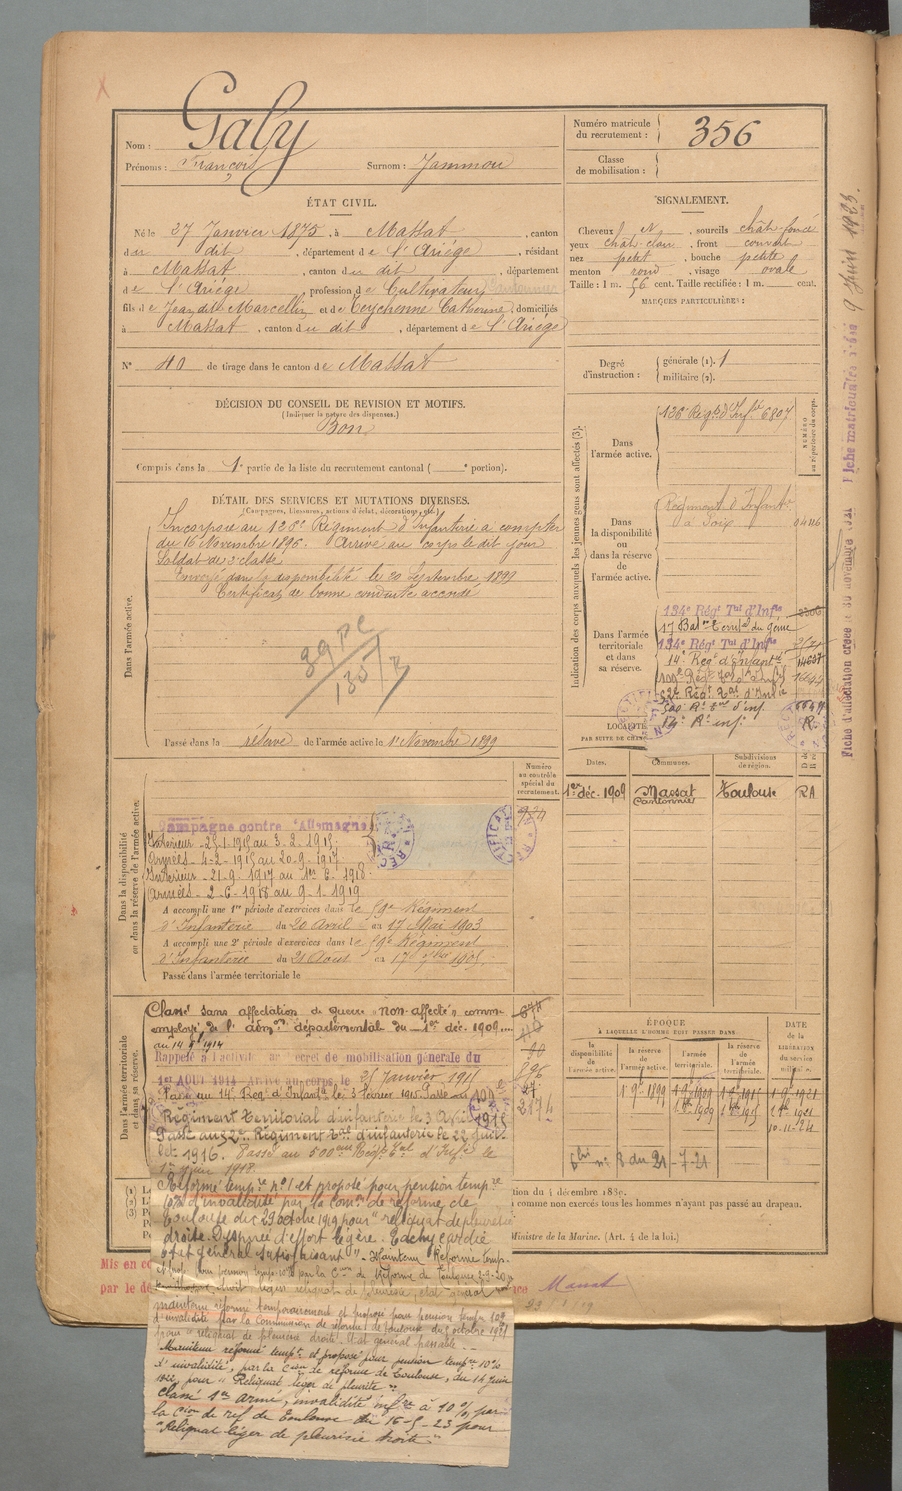 Nom : Galy
Prénoms : François Surnom : Jammou
Numéro matricule du recrutement : 356
Classe de mobilisation :
ÉTAT CIVIL.
Né le 27 Janvier 1875, à Massat, canton
du dit, département de l'Ariège, résidant
à Massat, canton du dit, département
de l'Ariège, profession de Cultivateur Cantonnier
fils de Jean dit Marcellin et de Teychenne Catherine, domiciliés
à Massat, canton du dit, département de l'Ariège
N° 40 de tirage dans le canton de Massat
SIGNALEMENT.
Cheveux N, sourcils chât. foncé
yeux chât. clair, front couvert
nez petit, bouche petite
menton rond, visage ovale
Taille : 1 m. 56 cent. Taille rectifiée : 1 m. cent.
MARQUES PARTICULIÈRES :
Degré d'instruction : générale (1). 1
militaire (2).
DÉCISION DU CONSEIL DE REVISION ET MOTIFS.
(Indiquer la nature des dispenses.)
Bon
Compris dans la 1e partie de la liste du recrutement cantonal ( e portion).
DÉTAIL DES SERVICES ET MUTATIONS DIVERSES.
(Campagnes, blessures, actions d'éclat, décorations, etc.)
Dans l'armée active.
Incorporé au 126e Régiment d'Infanterie à compter
du 16 Novembre 1896. Arrivé au corps le dit jour
Soldat de 2e classe
Envoyé dans la disponibilité le 20 Septembre 1899
Certificat de bonne conduite accordé
Passé dans la réserve de l'armée active le 1er Novembre 1899
Indication des corps auxquels les jeunes gens sont affectés (3).
NUMÉRO au répertoire du corps.
Dans l'armée active.
126e Régt d'Infie 6807
Dans la disponibilité ou dans la réserve de l'armée active.
Régiment d'Infantie
à Foix
Dans l'armée territoriale et dans sa réserve.
134e Régt Tal d'Infie
17 Baton territal du génie
134e Régt Tal d'Infie
14e Régt d'Infantie
500 Rt Tal d'inf
14e Rt inf
LOCALITÉS
PAR SUITE DE
Dates. Communes. Subdivisions de région.
1er déc. 1909 Massat Toulouse RA
Cantonnier
Dans la disponibilité ou dans la réserve de l'armée active.
Numéro au contrôle spécial du recrutement.
Campagne contre l'Allemagne
Intérieur - 25-1-1915 au 3-2-1915.
Armées - 4-2-1915 au 20-9-1917
Intérieur - 21-9-1917 au 1er 6-1918
Armées - 2-6-1918 au 9-1-1919
A accompli une 1re période d'exercices dans le 59e Régiment
d'Infanterie du 20 Avril au 17 Mai 1903
A accompli une 2e période d'exercices dans le 59e Régiment
d'Infanterie du 21 Août au 17 7bre 1905.
Passé dans l'armée territoriale le
Dans l'armée territoriale et dans sa réserve.
Classé sans affectation de guerre "non affecté" comme
employé de l'admon départementale du 1er déc. 1909
au 14 9bre 1914
Rappelé à l'activité par décret de mobilisation générale du
1er AOUT 1914 - Arrivé au corps le 25 Janvier 1915
Passé au 14e Régt d'Infantie le 3 février 1915. Passé au
Régiment territorial d'infanterie le 3
1915
Passé au 32e Régiment Tal d'infanterie le 22 juil-
let 1916. Passé au 500eme Régt Tal d'Infie le
1er juin 1918.
Réformé tempre n°1 et proposé pour pension tempre
10% d'invalidité par la comon de réforme de
Toulouse du 29 octobre 1919 pour "reliquat de pleurésie
droite. Dyspnée d'effort légère. Tachycardie
état général satisfaisant" - Maintenu Réformé temp.
maintenu réformé temporairement et proposé pour pension tempre 10%
d'invalidité par la Commission de réforme de Toulouse du octobre 1921
pour "reliquat de pleurésie droite. Etat général passable
Maintenu réformé tempt et proposé pour pension tempre 10%
d'invalidité, par la Cion de réforme de Toulouse, du 14 juin
1922, pour "Reliquat léger de pleurite"
Classé 1er armé, invalidité infre à 10%, par
la Cion de réf de Toulouse du 16-5-23 pour
"Reliquat léger de pleurésie droite"
ÉPOQUE
À LAQUELLE L'HOMME DOIT PASSER DANS
DATE de la LIBÉRATION du service militaire.
la disponibilité de l'armée active. la réserve de l'armée active. l'armée territoriale. la réserve de l'armée territoriale.
1 9bre 1899 1 9bre 1909 1 9bre 1915 1 9bre 1921
10.11.24
du 21-7-21
comme non exercés tous les hommes n'ayant pas passé au drapeau.
Ministre de la Marine. (Art. 4 de la loi.)
Massat
Fiche matriculaire 9 Juin 1923.